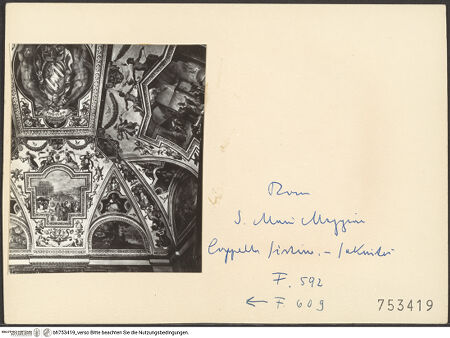 Rom
S. Maria Maggiore
Cappella Sistina. - Sakristei
F. 592
← F. 609
753419
bh753419_verso Bitte beachten Sie die Nutzungsbedingungen.